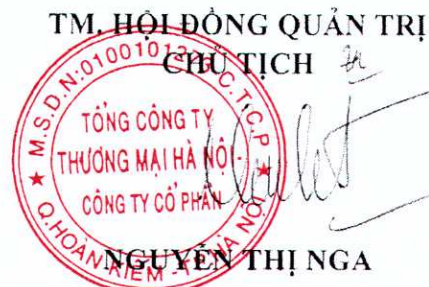 TM. HỘI ĐỒNG QUẢN TRỊ
CHỦ TỊCH
TỔNG CÔNG TY
THƯƠNG MẠI HÀ NỘI-
CÔNG TY CỔ PHẦN
Q.HOÀN KIẾM - TP. HÀ NỘI
NGUYỄN THỊ NGA